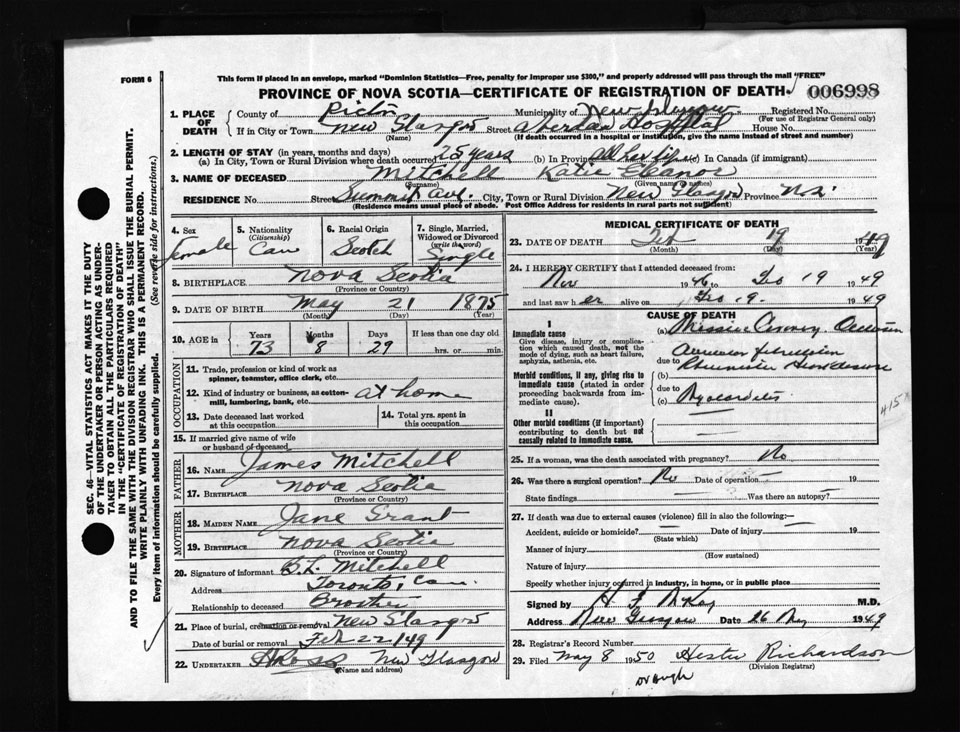 FORM 6
This form if placed in an envelope, marked "Dominion Statistics—Free, penalty for improper use $300," and properly addressed will pass through the mail "FREE"
PROVINCE OF NOVA SCOTIA—CERTIFICATE OF REGISTRATION OF DEATH 006998
1. PLACE OF DEATH
County of Pictou Municipality of New Glasgow Registered No.
(For use of Registrar General only)
If in City or Town New Glasgow Street Aberdeen Hospital House No.
(Name) (If death occurred in a hospital or institution, give the name instead of street and number)
2. LENGTH OF STAY (in years, months and days)
(a) In City, Town or Rural Division where death occurred 25 years (b) In Province All her life (c) In Canada (if immigrant)
3. NAME OF DECEASED Mitchell Katie Eleanor
(Surname) (Given name or names)
RESIDENCE No. Street Summit Ave. City, Town or Rural Division New Glasgow Province N.S.
(Residence means usual place of abode. Post Office Address for residents in rural parts not sufficient)
4. Sex Female
5. Nationality (Citizenship) Can
6. Racial Origin Scotch
7. Single, Married, Widowed or Divorced (write the word) Single
8. BIRTHPLACE Nova Scotia
(Province or Country)
9. DATE OF BIRTH May 21 1875
(Month) (Day) (Year)
10. AGE in Years Months Days If less than one day old
73 8 29 hrs. or min.
OCCUPATION
11. Trade, profession or kind of work as spinner, teamster, office clerk, etc.
12. Kind of industry or business, as cotton-mill, lumbering, bank, etc. at home
13. Date deceased last worked at this occupation
14. Total yrs. spent in this occupation
15. If married give name of wife or husband of deceased
FATHER
16. NAME James Mitchell
17. BIRTHPLACE Nova Scotia
(Province or Country)
MOTHER
18. MAIDEN NAME Jane Grant
19. BIRTHPLACE Nova Scotia
(Province or Country)
20. Signature of informant B.L. Mitchell
Address Toronto, Can.
Relationship to deceased Brother
21. Place of burial, cremation or removal New Glasgow
Date of burial or removal Feb 22/49
22. UNDERTAKER New Glasgow
MEDICAL CERTIFICATE OF DEATH
23. DATE OF DEATH Feb 19 1949
(Month) (Day) (Year)
24. I HEREBY CERTIFY that I attended deceased from
Nov 1946 to Feb 19 1949
and last saw her alive on Feb 19. 1949
CAUSE OF DEATH
I
Immediate cause
Give disease, injury or complication which caused death, not the mode of dying, such as heart failure, asphyxia, asthenia, etc.
(a) Massive Coronary Occlusion
due to
Morbid conditions, if any, giving rise to immediate cause (stated in order proceeding backwards from immediate cause).
(b) Auricular fibrillation
due to
(c) Myocarditis
II
Other morbid conditions (if important) contributing to death but not causally related to immediate cause.
25. If a woman, was the death associated with pregnancy? No
26. Was there a surgical operation? No Date of operation 19
State findings Was there an autopsy?
27. If death was due to external causes (violence) fill in also the following:—
Accident, suicide or homicide? Date of injury 19
(State which)
Manner of injury
(How sustained)
Nature of injury
Specify whether injury occurred in industry, in home, or in public place
Signed by M.D.
Address New Glasgow Date 26 1949
28. Registrar's Record Number
29. Filed May 8 1950 Hester Richardson
(Division Registrar)
SEC. 46—VITAL STATISTICS ACT MAKES IT THE DUTY OF THE UNDERTAKER OR PERSON ACTING AS UNDERTAKER TO OBTAIN ALL THE PARTICULARS REQUIRED IN THE "CERTIFICATE OF REGISTRATION OF DEATH" AND TO FILE THE SAME WITH THE DIVISION REGISTRAR WHO SHALL ISSUE THE BURIAL PERMIT.
WRITE PLAINLY WITH UNFADING INK. THIS IS A PERMANENT RECORD.
Every item of information should be carefully supplied. (See reverse side for instructions.)